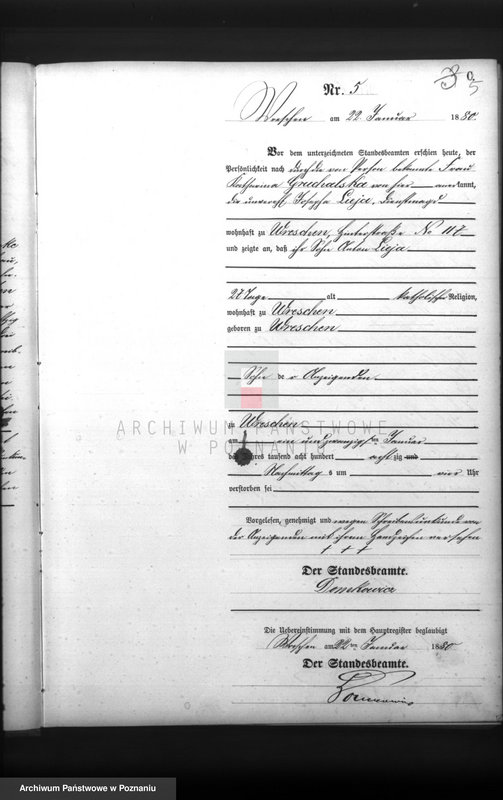 3 0.
5
Nr. 5
Wreschen am 22 Januar 1880
Vor dem unterzeichneten Standesbeamten erschien heute, der
Persönlichkeit nach durch die von Person bekannte Frau
Katharina Gruchalska von hier anerkannt,
die unvereh. Josepha Luja, Dienstmagd
wohnhaft zu Wreschen, Hinterstraße No 117
und zeigte an, daß ihr Sohn Anton Luja
27 Tage alt katholischer Religion,
wohnhaft zu Wreschen
geboren zu Wreschen
Sohn der Anzeigenden
zu Wreschen
am ein und zwanzigsten Januar
des Jahres tausend acht hundert achtzig und
Nachmittags um vier Uhr
verstorben sei
Vorgelesen, genehmigt und wegen Schreibensunkunde von
der Anzeigenden mit ihrem Handzeichen versehen
† † †
Der Standesbeamte.
Die Uebereinstimmung mit dem Hauptregister beglaubigt
Wreschen am 22ten Januar 1880
Der Standesbeamte.
ARCHIWUM PAŃSTWOWE
W POZNANIU
Archiwum Państwowe w Poznaniu